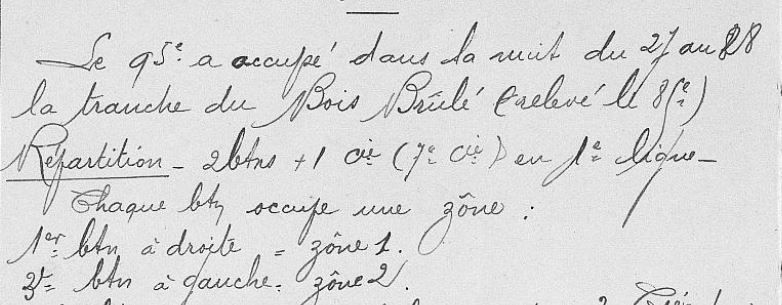 Le 95e a occupé dans la nuit du 27 au 28
la tranche du Bois Brûlé (relevé le 85e)
Répartition - 2 btns + 1 Cie (7e Cie) en 1e ligne -
Chaque btn occupe une zône :
1er btn à droite = zône 1.
3e btn à gauche = zône 2.